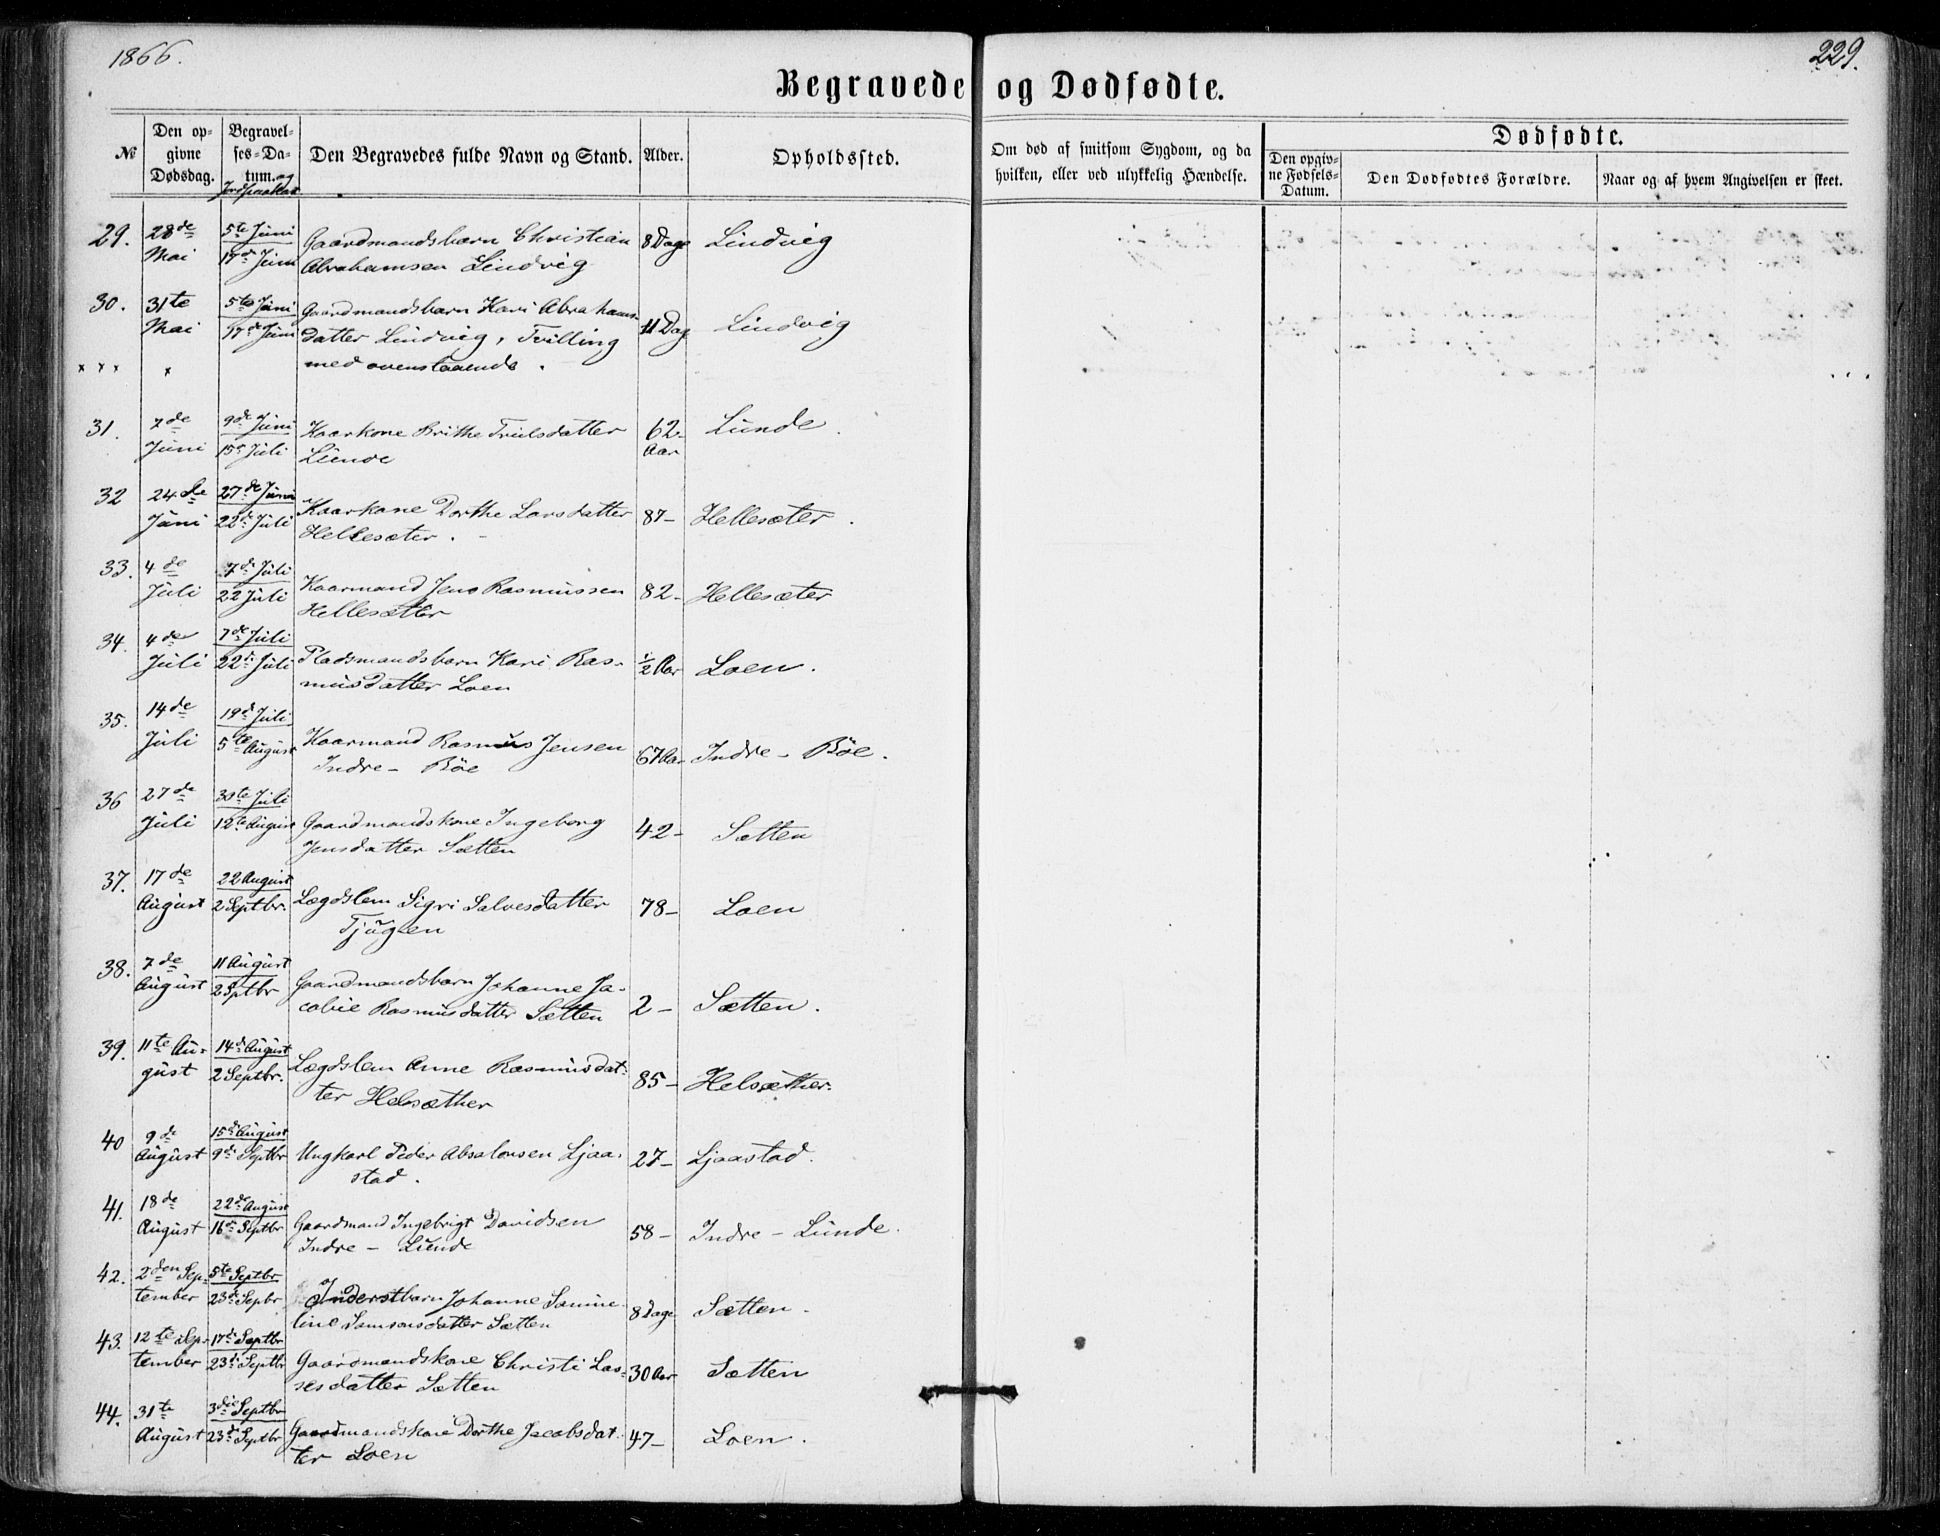 1866.
229.
Begravede og Dødfødte.
№
Den opgivne Dødsdag.
Begravelses-Datum. og Jordpaakast
Den Begravedes fulde Navn og Stand.
Alder.
Opholdssted.
Om død af smitsom Sygdom, og da hvilken, eller ved ulykkelig Hændelse.
Dødfødte.
Den opgivne Fødsels-Datum.
Den Dødfødtes Forældre.
Naar og af hvem Angivelsen er skeet.
29. 28de Mai 5te Juni 17de Juni Gaardmandsbarn Christian Abrahamsen Lindvig 8 Dage Lindvig
30. 31te Mai 5te Juni 17de Juni Gaardmandsbarn Kari Abrahamsdatter Lindvig, Tvilling med ovenstaaende. 11 Dag Lindvig
31. 7de Juni 9de Juni 15de Juli Kaarkone Brithe Trulsdatter Lunde 62 Aar Lunde.
32 24de Juni 27de Juni 22de Juli Kaarkone Dorthe Larsdatter Hellesæter. 87 - Hellesæter.
33. 4de Juli 7de Juli 22 Juli Kaarmand Jens Rasmussen Hellesætter 82 - Hellesæter
34. 4de Juli 7de Juli 22de Juli Pladsmandsbarn Kari Rasmusdatter Loen 1/2 Aar Loen.
35. 14de Juli 19de Juli 5te August Kaarmand Rasmus Jensen Indre - Böe 67 Aar Indre - Böe.
36 27de Juli 30te Juli 12te August Gaardmandskone Ingeborg Jensdatter Sætten 42 - Sætten
37. 17de August 22 August 2 Septbr. Lægdslem Sigri Salvesdatter Tjugen 78 - Loen
38. 7de August 11 August 2 Sptbr Gaardmandsbarn Johanne Jacobie Rasmusdatter Sætten 2 - Sætten.
39. 11te August 14de August 2 Septbr. Lægdslem Anne Rasmusdatter Helsæther 85 - Helsæther.
40 9de August 15de August 9de Septbr Ungkarl Peder Absalonsen Ljaastad. 27 - Ljaastad.
41. 18de August 22de August 16de Septbr Gaardmand Ingebrigt Davidsen Indre - Lunde 58 - Indre - Lunde.
42. 2den September 5te Septbr 23de Sepbr Inderstbarn Johanne Samueline Samsonsdatter Sætten 8 Dage Sætten.
43. 12te September 17de Septbr 23de Septbr Gaardmandskone Christi Lassesdatter Sætten 30 Aar Sætten
44. 31te August 3die Septbr 23de Septbr Gaardmandskone Dorthe Jacobsdatter Loen 47 - Loen.